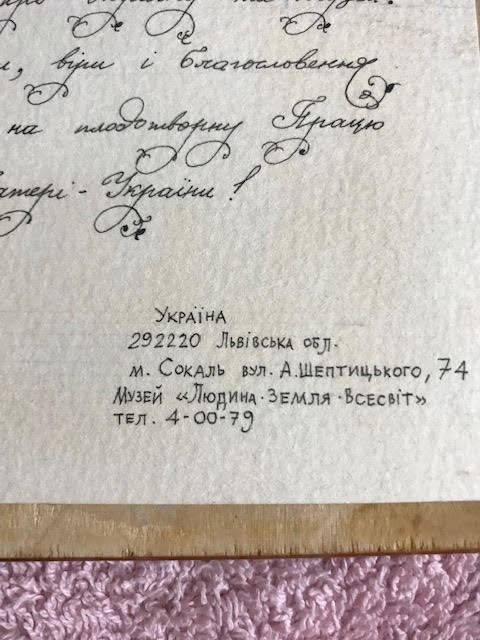 , віри і Благословення
на плодотворну Працю
атері - України!
Україна
292220 Львівська обл.
м. Сокаль вул. А.Шептицького, 74
Музей «Людина·Земля·Всесвіт»
тел. 4-00-79